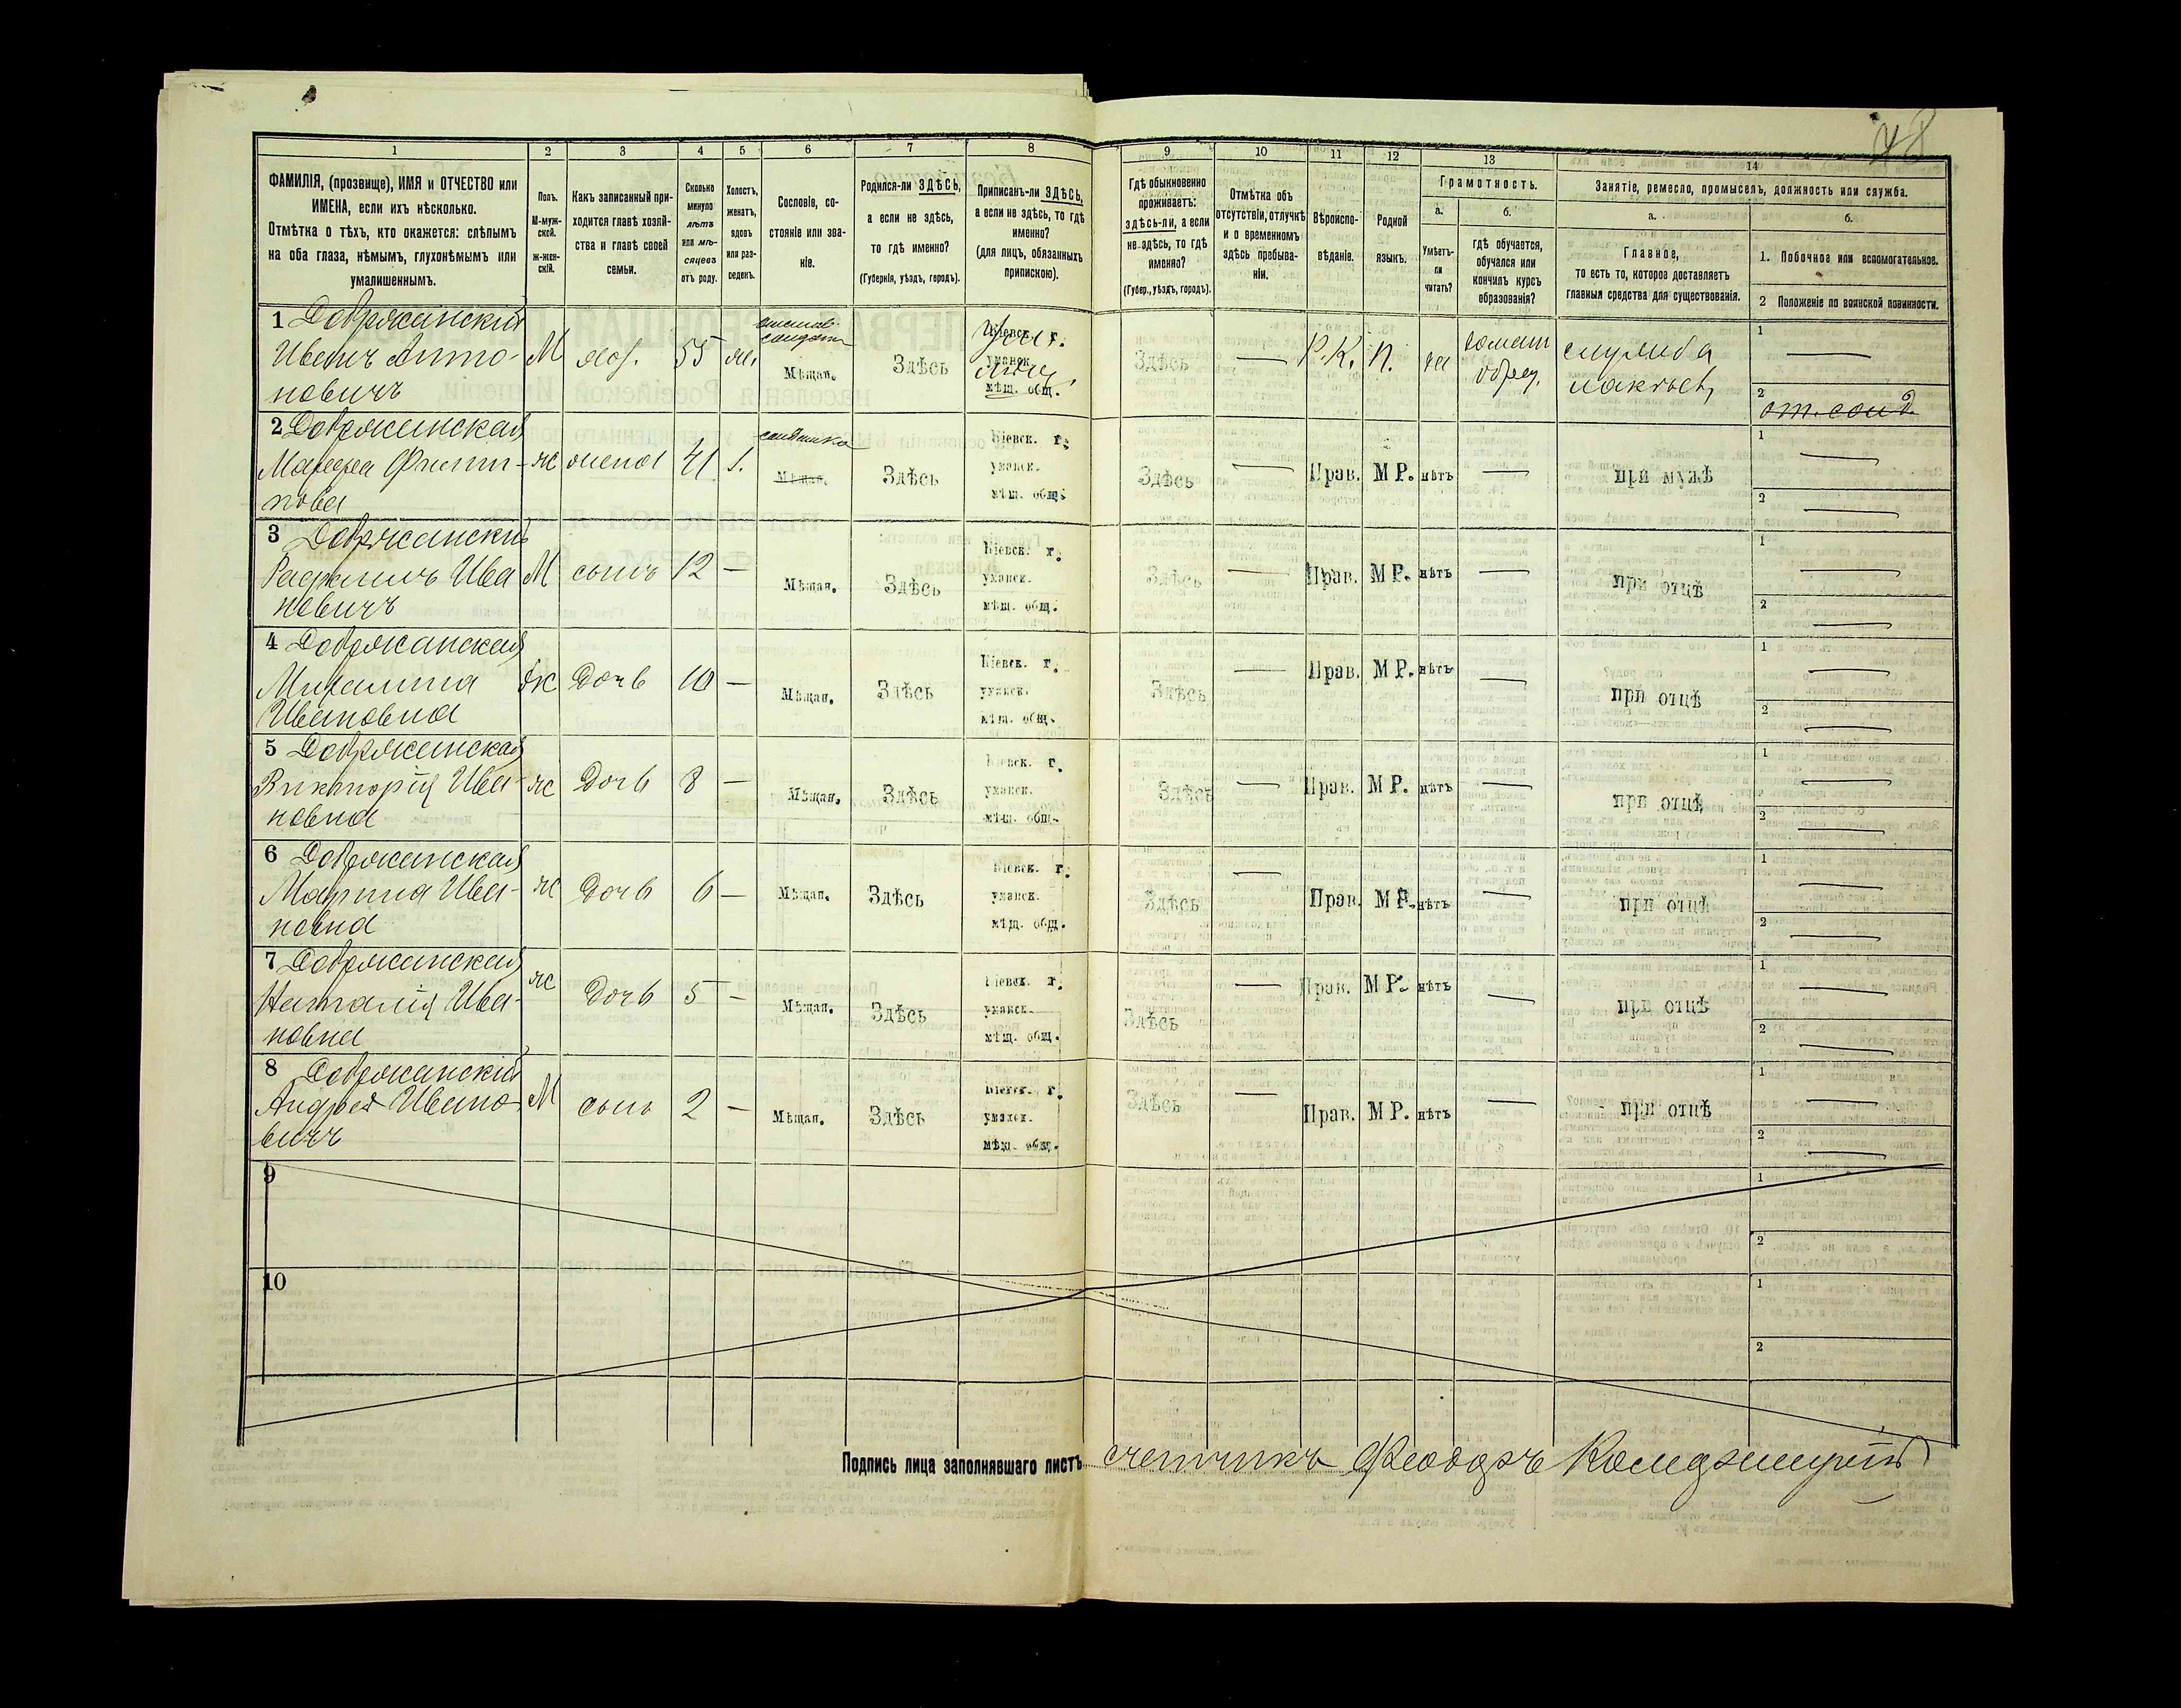 48
1 2 3 4 5 6 7 8 9 10 11 12 13 14
ФАМИЛІЯ, (прозвище), ИМЯ и ОТЧЕСТВО или
ИМЕНА, если ихъ нѣсколько.
Отмѣтка о тѣхъ, кто окажется: слѣпымъ
на оба глаза, нѣмымъ, глухонѣмымъ или
умалишеннымъ.
Полъ.
М-муж-
ской.
Ж-жен-
скій.
Какъ записанный при-
ходится главѣ хозяй-
ства и главѣ своей
семьи.
Сколько
минуло
лѣтъ
или мѣ-
сяцевъ
отъ роду.
Холостъ,
женатъ,
вдовъ
или раз-
веденъ.
Сословіе, со-
стояніе или зва-
ніе.
Родился-ли ЗДѢСЬ,
а если не здѣсь,
то гдѣ именно?
(Губернія, уѣздъ, городъ).
Приписанъ-ли ЗДѢСЬ,
а если не здѣсь, то гдѣ
именно?
(для лицъ, обязанныхъ
припискою).
Гдѣ обыкновенно
проживаетъ:
здѣсь-ли, а если
не здѣсь, то гдѣ
именно?
(Губер., уѣздъ, городъ).
Отмѣтка объ
отсутствіи, отлучкѣ
и о временномъ
здѣсь пребыва-
ніи.
Вѣроиспо-
вѣданіе.
Родной
языкъ.
Грамотность.
а.
Умѣетъ-
ли
читать?
б.
гдѣ обучается,
обучался или
кончилъ курсъ
образованія?
Занятіе, ремесло, промыселъ, должность или служба.
а.
Главное,
то есть то, которое доставляетъ
главныя средства для существованія.
б.
1. Побочное или вспомогательное.
2 Положеніе по воинской повинности.
1 Добржанскій
Иванъ Анто-
новичъ
М хоз. 55 ж.
Мѣщан.
Здѣсь
Кіевск. г.
уманск.
мѣщ. общ.
Здѣсь — Р.К. п. да
домаш
образ.
служба
лакеей
1 —
2 от. солд.
2 Добржанская
Марфа Филип-
пова
ж жена 41 з.
солдатка
Мѣщан.
Здѣсь
Кіевск. г.
уманск.
мѣщ. общ.
Здѣсь — Прав. М Р. нѣтъ — при мужѣ
1 —
2 —
3 Добржанскій
Рафаилъ Ива
новичъ
М сынъ 12 — Мѣщан. Здѣсь
Кіевск. г.
уманск.
мѣщ. общ.
Здѣсь — Прав. М Р. нѣтъ — при отцѣ
1 —
2 —
4 Добржанская
Михалина
Ивановна
ж дочь 10 — Мѣщан. Здѣсь
Кіевск. г.
уманск.
мѣщ. общ.
Здѣсь — Прав. М Р. нѣтъ — при отцѣ
1 —
2 —
5 Добржанская
Викторія Ива-
новна
ж дочь 8 — Мѣщан. Здѣсь
Кіевск. г.
уманск.
мѣщ. общ.
Здѣсь — Прав. М Р. нѣтъ — при отцѣ
1 —
2 —
6 Добржанская
Марина Ива-
новна
ж дочь 6 — Мѣщан. Здѣсь
Кіевск. г.
уманск.
мѣщ. общ.
Здѣсь — Прав. М Р. нѣтъ — при отцѣ
1 —
2 —
7 Добржанская
Наталія Ива-
новна
ж дочь 5 — Мѣщан. Здѣсь
Кіевск. г.
уманск.
мѣщ. общ.
Здѣсь — Прав. М Р. нѣтъ — при отцѣ
1 —
2 —
8 Добржанскій
Андрей Ивано-
вичъ
М сынъ 2 — Мѣщан. Здѣсь
Кіевск. г.
уманск.
мѣщ. общ.
Здѣсь — Прав. М Р. нѣтъ — при отцѣ
1 —
2 —
9
1
2
10
1
2
Подпись лица заполнявшаго листъ счетчикъ Феодоръ